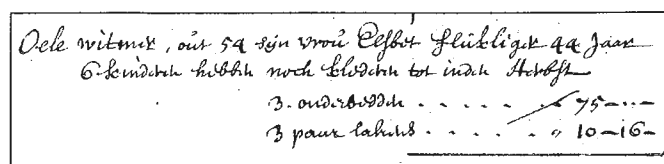 Oele witmer, out 54 sijn vrou Elsbet flükliger 44 Jaar
6 kinderen hebben noch klederen tot inden Herbst
3. onderbedden . . . . . " 75 - ... -
3 paar lakens . . . . . " 10 - 16 -